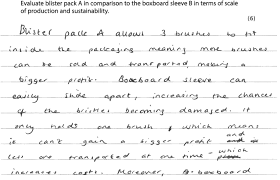 Evaluate blister pack A in comparison to the boxboard sleeve B in terms of scale
of production and sustainability.
(6)
Blister pack A allows 3 brushes to fit
inside the packaging meaning more brushes
can be sold and transported, making a
bigger profit. Boxboard sleeve can
easily slide apart, increasing the chances
of the bristles becoming damaged. it
only holds one brush, which means
it can't gain a bigger profit and
less are transported at one time - which
increases costs. Moreover, B: boxboard